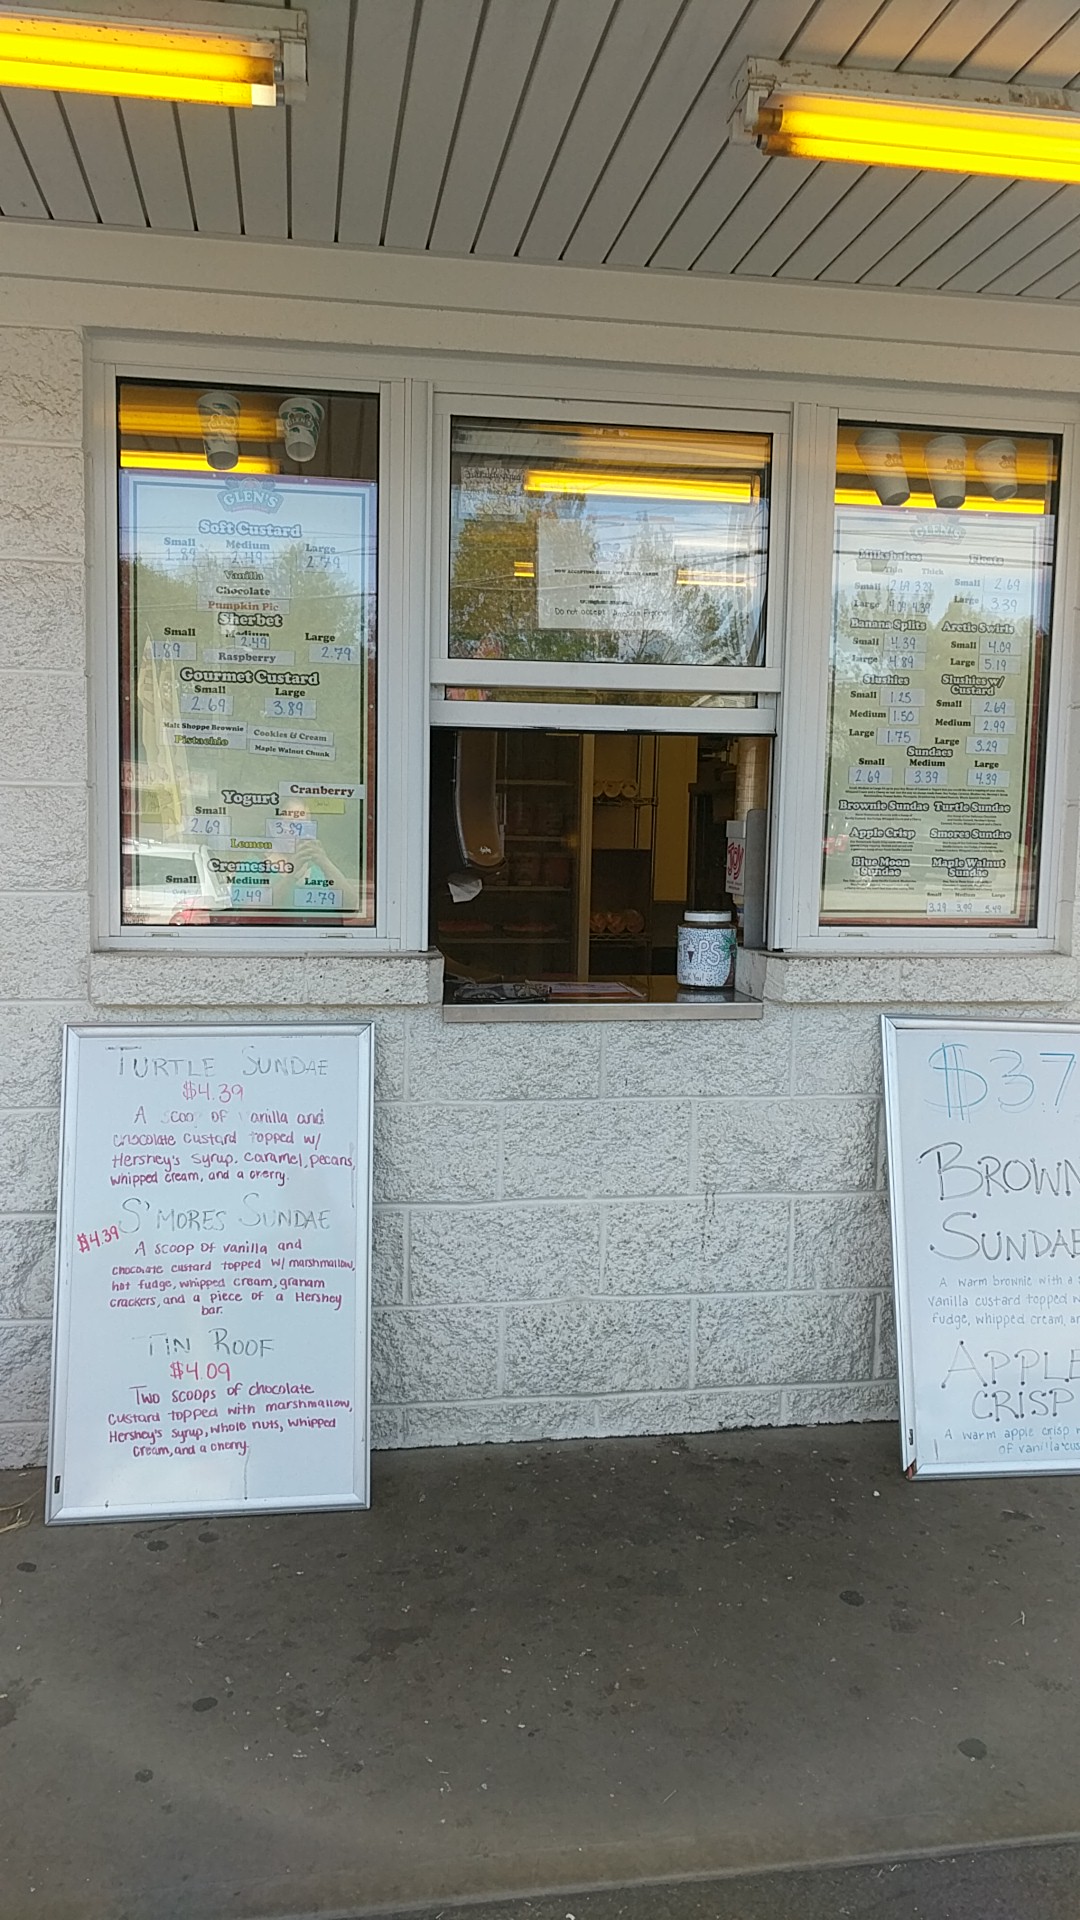 GLEN'S
Soft Custard
Small Medium Large
1.89 2.49 2.79
Vanilla
Chocolate
Pumpkin Pie
Sherbet
Small Medium Large
1.89 2.49 2.79
Raspberry
Gourmet Custard
Small Large
2.69 3.89
Malt Shoppe Brownie Cookies & Cream
Pistachio Maple Walnut Chunk
Cranberry
Yogurt
Small Large
2.69 3.89
Lemon
Cremesicle
Small Medium Large
2.49 2.79
Do not accept
TIPS
GLEN'S
Milkshakes Floats
Thin Thick
Small 2.69 3.39 Small 2.69
Large Large 3.39
Banana Splits Arctic Swirls
Small 4.39 Small 4.09
Large 4.89 Large 5.19
Slushies Slushies w/ Custard
Small 1.25 Small 2.69
Medium 1.50 Medium 2.99
Large 1.75 Large 3.29
Sundaes
Small Medium Large
2.69 3.39 4.39
Brownie Sundae Turtle Sundae
Apple Crisp Smores Sundae
Blue Moon Sundae Maple Walnut Sundae
Small Medium Large
3.29 3.99 5.49
TURTLE SUNDAE
$4.39
A scoop of vanilla and
chocolate custard topped w/
Hershey's syrup, caramel, pecans,
whipped cream, and a cherry.
S'MORES SUNDAE
$4.39
A scoop of vanilla and
chocolate custard topped w/ marshmallow,
hot fudge, whipped cream, graham
crackers, and a piece of a Hershey
bar.
TIN ROOF
$4.09
Two scoops of chocolate
custard topped with marshmallow,
Hershey's syrup, whole nuts, whipped
cream, and a cherry.
$3.7
BROWN
SUNDAE
A warm brownie with a
vanilla custard topped w
fudge, whipped cream, an
APPLE
CRISP
A warm apple crisp
of vanilla cus